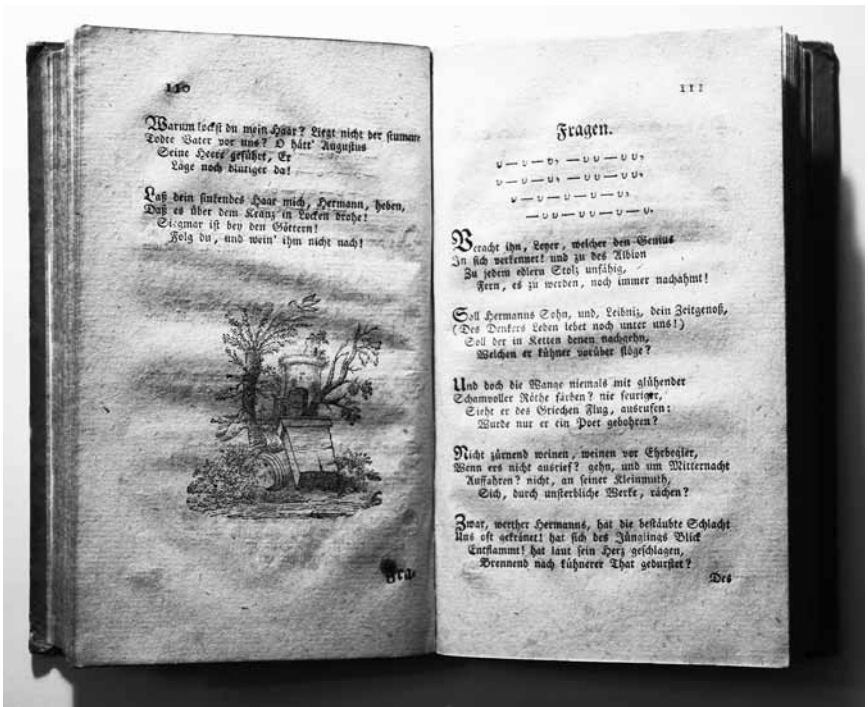 110
Warum lockst du mein Haar? Liegt nicht der stumme
Todte Vater vor uns? O hätt' Augustus
Seine Heere geführt, Er
Läge noch blutiger da!
Laß dein sinkendes Haar mich, Hermann, heben,
Daß es über dem Kranz in Locken drohe!
Siegmar ist bey den Göttern!
Folg du, und wein' ihm nicht nach!
Fra-
111
Fragen.
υ — υ — υ, — υ υ — υ υ,
υ — υ — υ, — υ υ — υ υ.
υ — υ — υ — υ — υ,
— υ υ — υ υ — υ — υ.
Veracht ihn, Leyer, welcher den Genius
In sich verkennet! und zu des Albion
Zu jedem edlern Stolz unfähig,
Fern, es zu werden, noch immer nachahmt!
Soll Hermanns Sohn, und, Leibniz, dein Zeitgenoß,
(Des Denkers Leben lebet noch unter uns!)
Soll der in Ketten denen nachgehn,
Welchen er kühner vorüber flöge?
Und doch die Wange niemals mit glühender
Schamvoller Röthe färben? nie feuriger,
Sieht er des Griechen Flug, ausrufen:
Wurde nur er ein Poet gebohren?
Nicht zürnend weinen, weinen vor Ehrbegier,
Wenn ers nicht ausrief? gehn, und um Mitternacht
Auffahren? nicht, an seiner Kleinmuth,
Sich, durch unsterbliche Werke, rächen?
Zwar, werther Hermanns, hat die bestäubte Schlacht
Uns oft gekrönet! hat sich des Jünglings Blick
Entflammt! hat laut sein Herz geschlagen,
Brennend nach kühnerer That gedurstet?
Des